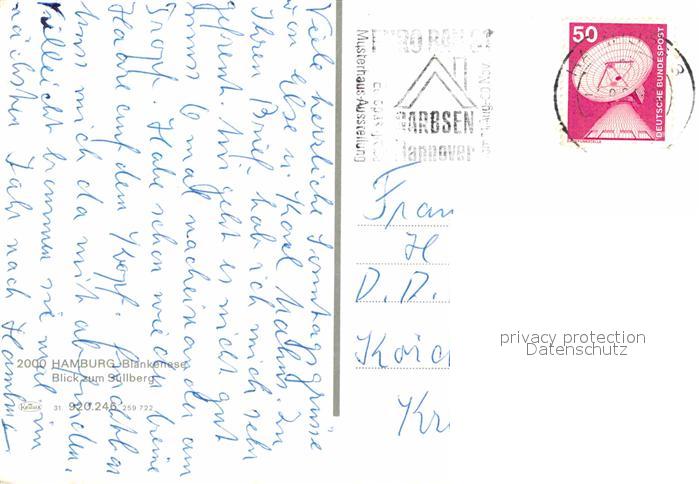 Viele herzliche Sonntagsgrüsse
von Else u. Karl Hahn. Zu
Ihren Brief hab ich mich sehr
gefreut. Mir geht es nicht gut
muss 6 mal nacheinander am
Tropf. Habe schon wieder keine
Haare auf dem Kopf.
muss mich da mit abfinden.
Vielleicht kommen sie mal im
nächsten Jahr nach Hamburg
2000 HAMBURG-Blankenese
Blick zum Süllberg
Krüger 31 920.246 259 722
Musterhaus-Ausstellung
GARBSEN
Hannover
50
DEUTSCHE BUNDESPOST
Fran
H
D.D.
Kr
privacy protection
Datenschutz